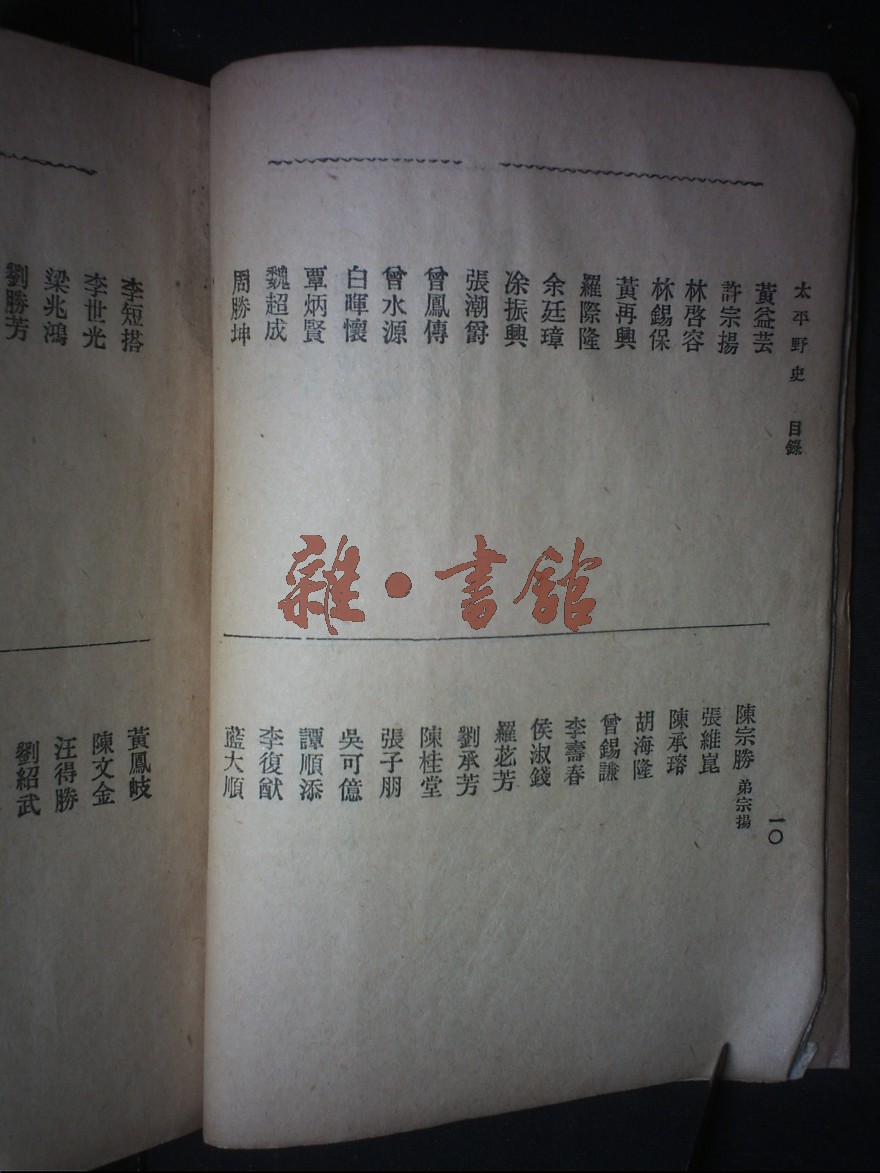 太平野史 目錄
一〇
黃益芸
許宗揚
林啓容
林錫保
黃再興
羅際隆
余廷璋
涂振興
張潮爵
曾鳳傳
曾水源
白暉懷
覃炳賢
魏超成
周勝坤
陳宗勝 弟宗揚
張維崑
陳承瑢
胡海隆
曾錫謙
李壽春
侯淑錢
羅苾芳
劉承芳
陳桂堂
張子朋
吳可億
譚順添
李復猷
藍大順
李短搭
李世光
梁兆鴻
劉勝芳
黃鳳岐
陳文金
汪得勝
劉紹武
雜·書館